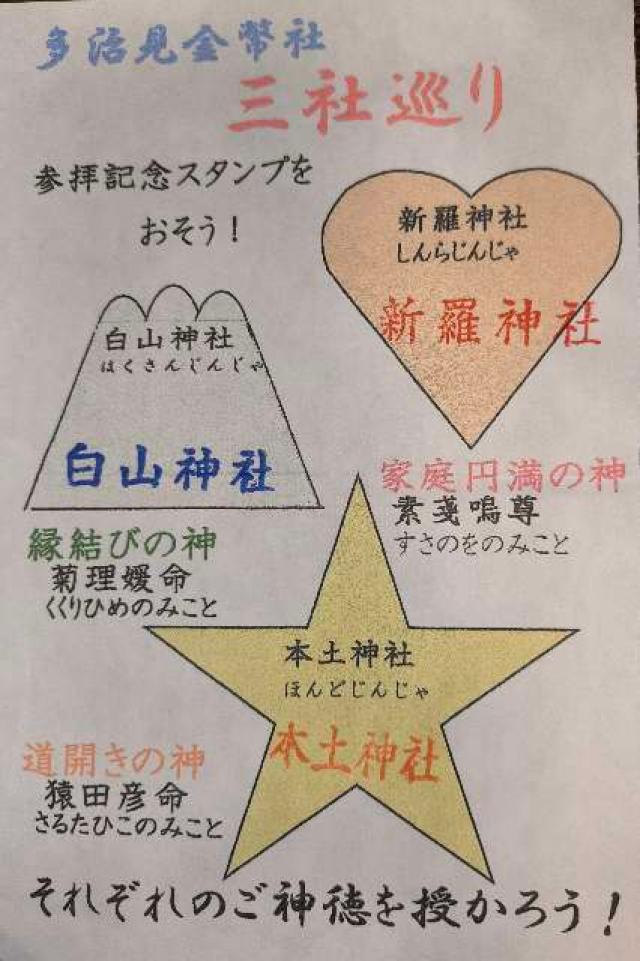 多治見金幣社
三社巡り
参拝記念スタンプを
おそう！
新羅神社
しんらじんじゃ
新羅神社
白山神社
はくさんじんじゃ
白山神社
家庭円満の神
素戔嗚尊
すさのをのみこと
縁結びの神
菊理媛命
くくりひめのみこと
本土神社
ほんどじんじゃ
本土神社
道開きの神
猿田彦命
さるたひこのみこと
それぞれのご神徳を授かろう！